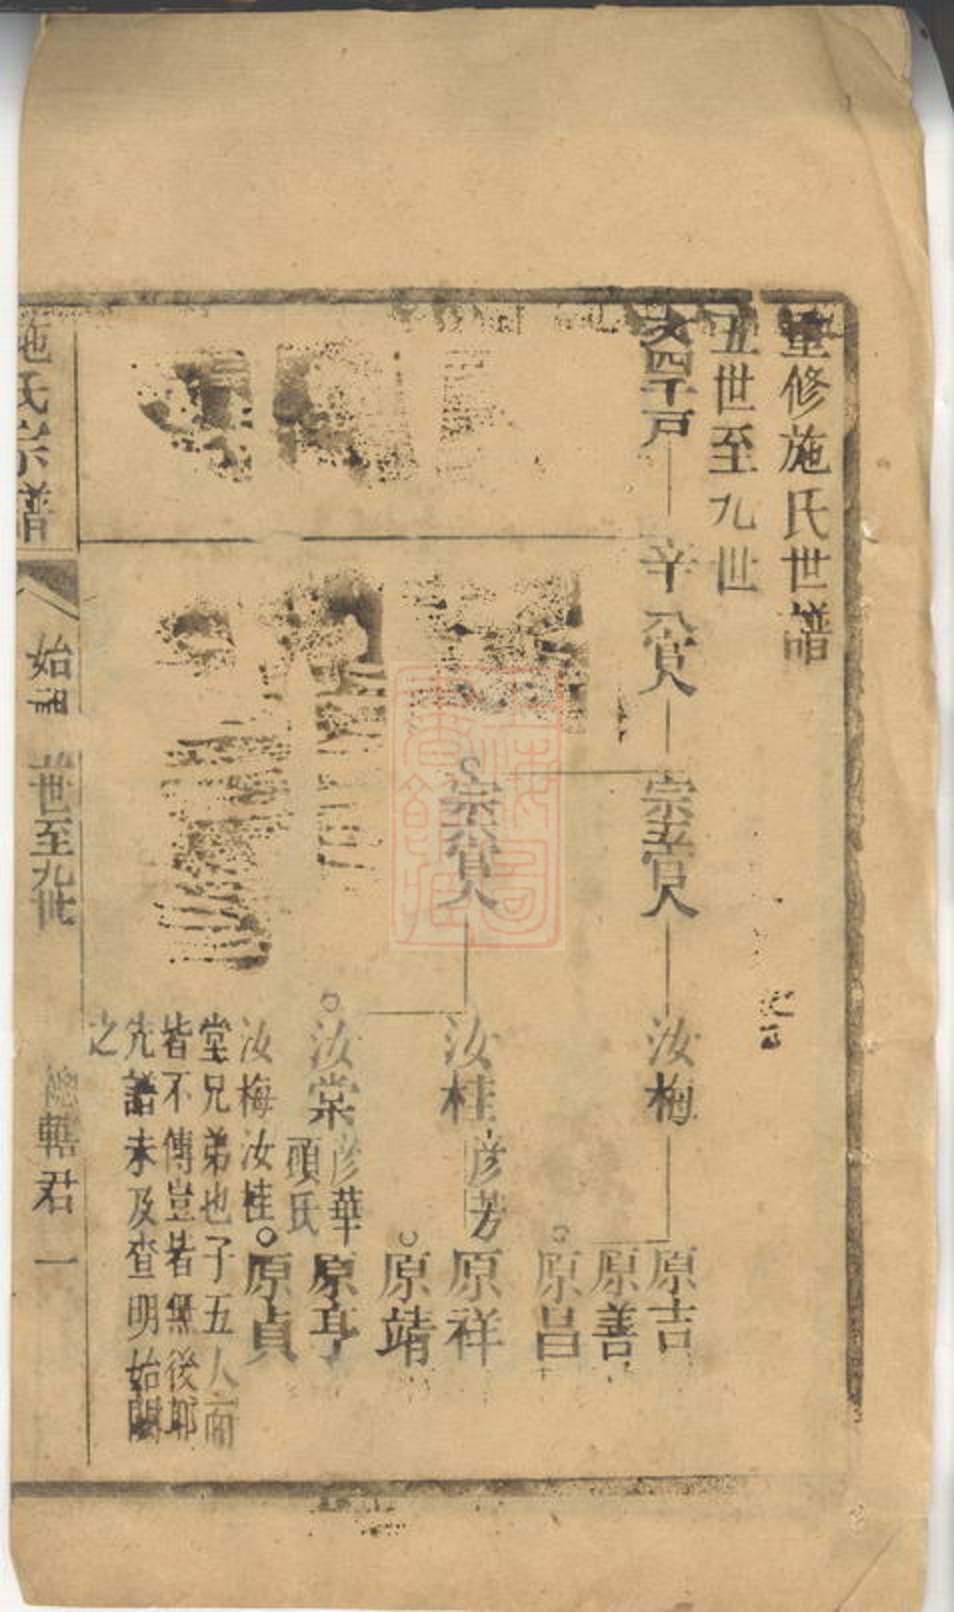 重修施氏世譜
五世至九世
文四千戶
辛八貿人
宗五官人
汝梅
原吉
原善
原昌
宗六貿人
汝桂
彦芳
原祥
原靖
汝棠
彦華
頭氏
原亨
原貞
汝梅汝桂
堂兄弟也子五人而
皆不傳豈若無後耶
先譜未及查明始闕
之
施氏宗譜
始祖
世至九世
總轄君
一
上海圖書館藏